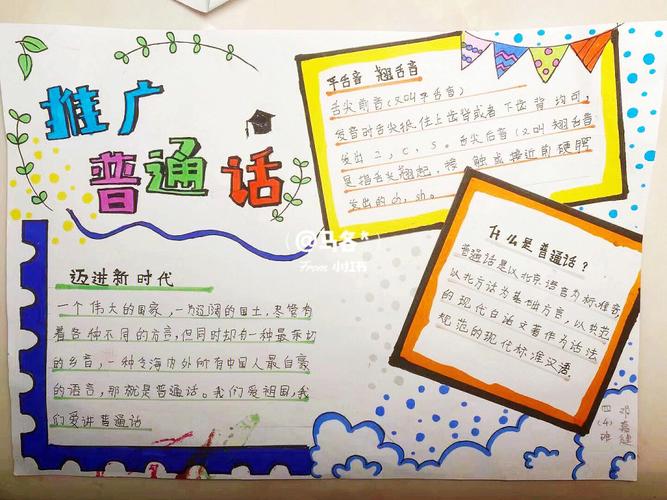 推广
普通话
平舌音 翘舌音
舌尖前音(又叫平舌音)
发音时舌尖抵住上齿背或者下齿背均可,
发出z,c,s。舌尖后音(又叫翘舌音
是指舌尖翘起,接触或接近前硬腭
发出的 sh。
什么是普通话?
普通话是以北京语言为标准音,
以北方话为基础方言,以典范
的现代白话文著作为语法
规范的现代标准汉语。
迈进新时代
一个伟大的国家,一为辽阔的国土,尽管有
着各种不同的方言,但同时却有一种最亲切
的乡音,一种令海内外所有中国人最自豪
的语言,那就是普通话。我们爱祖国,我
们爱讲普通话
四(4)班
邓嘉建
From 小红书